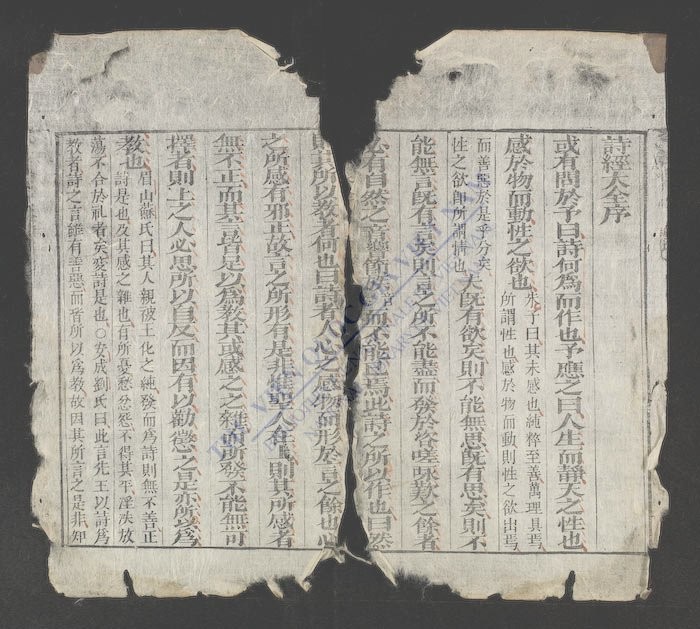 詩經大全序
或有問於予曰詩何爲而作也予應之曰人生而靜天之性也
感於物而動性之欲也
朱子曰其未感也純粹至善萬理具焉
所謂性也感於物而動則性之欲出焉
而善惡於是乎分矣
性之欲即所謂情也
夫旣有欲矣則不能無思旣有思矣則不
能無言旣有言矣則言之所不能盡而發於咨嗟咏歎之餘者
必有自然之音響節奏而不能已焉此詩之所以作也曰然
則其所以教者何也曰詩者人心之感物而形於言之餘也心
之所感有邪正故言之所形有是非惟聖人在上則其所感者
無不正而其言皆足以爲教其或感之之雜而所發不能無可
擇者則上之人必思所以自反而因有以勸懲之是亦所以爲
教也
眉山蘇氏曰其人親被王化之純發而爲詩則無不善正
詩是也及其感之雜也有所憂愁忿怒不得其平淫泆放
蕩不合於礼者矣變詩是也○安成劉氏曰此言先王以詩爲
教者詩之言雖有善惡而皆所以爲教故因其所言之是非知